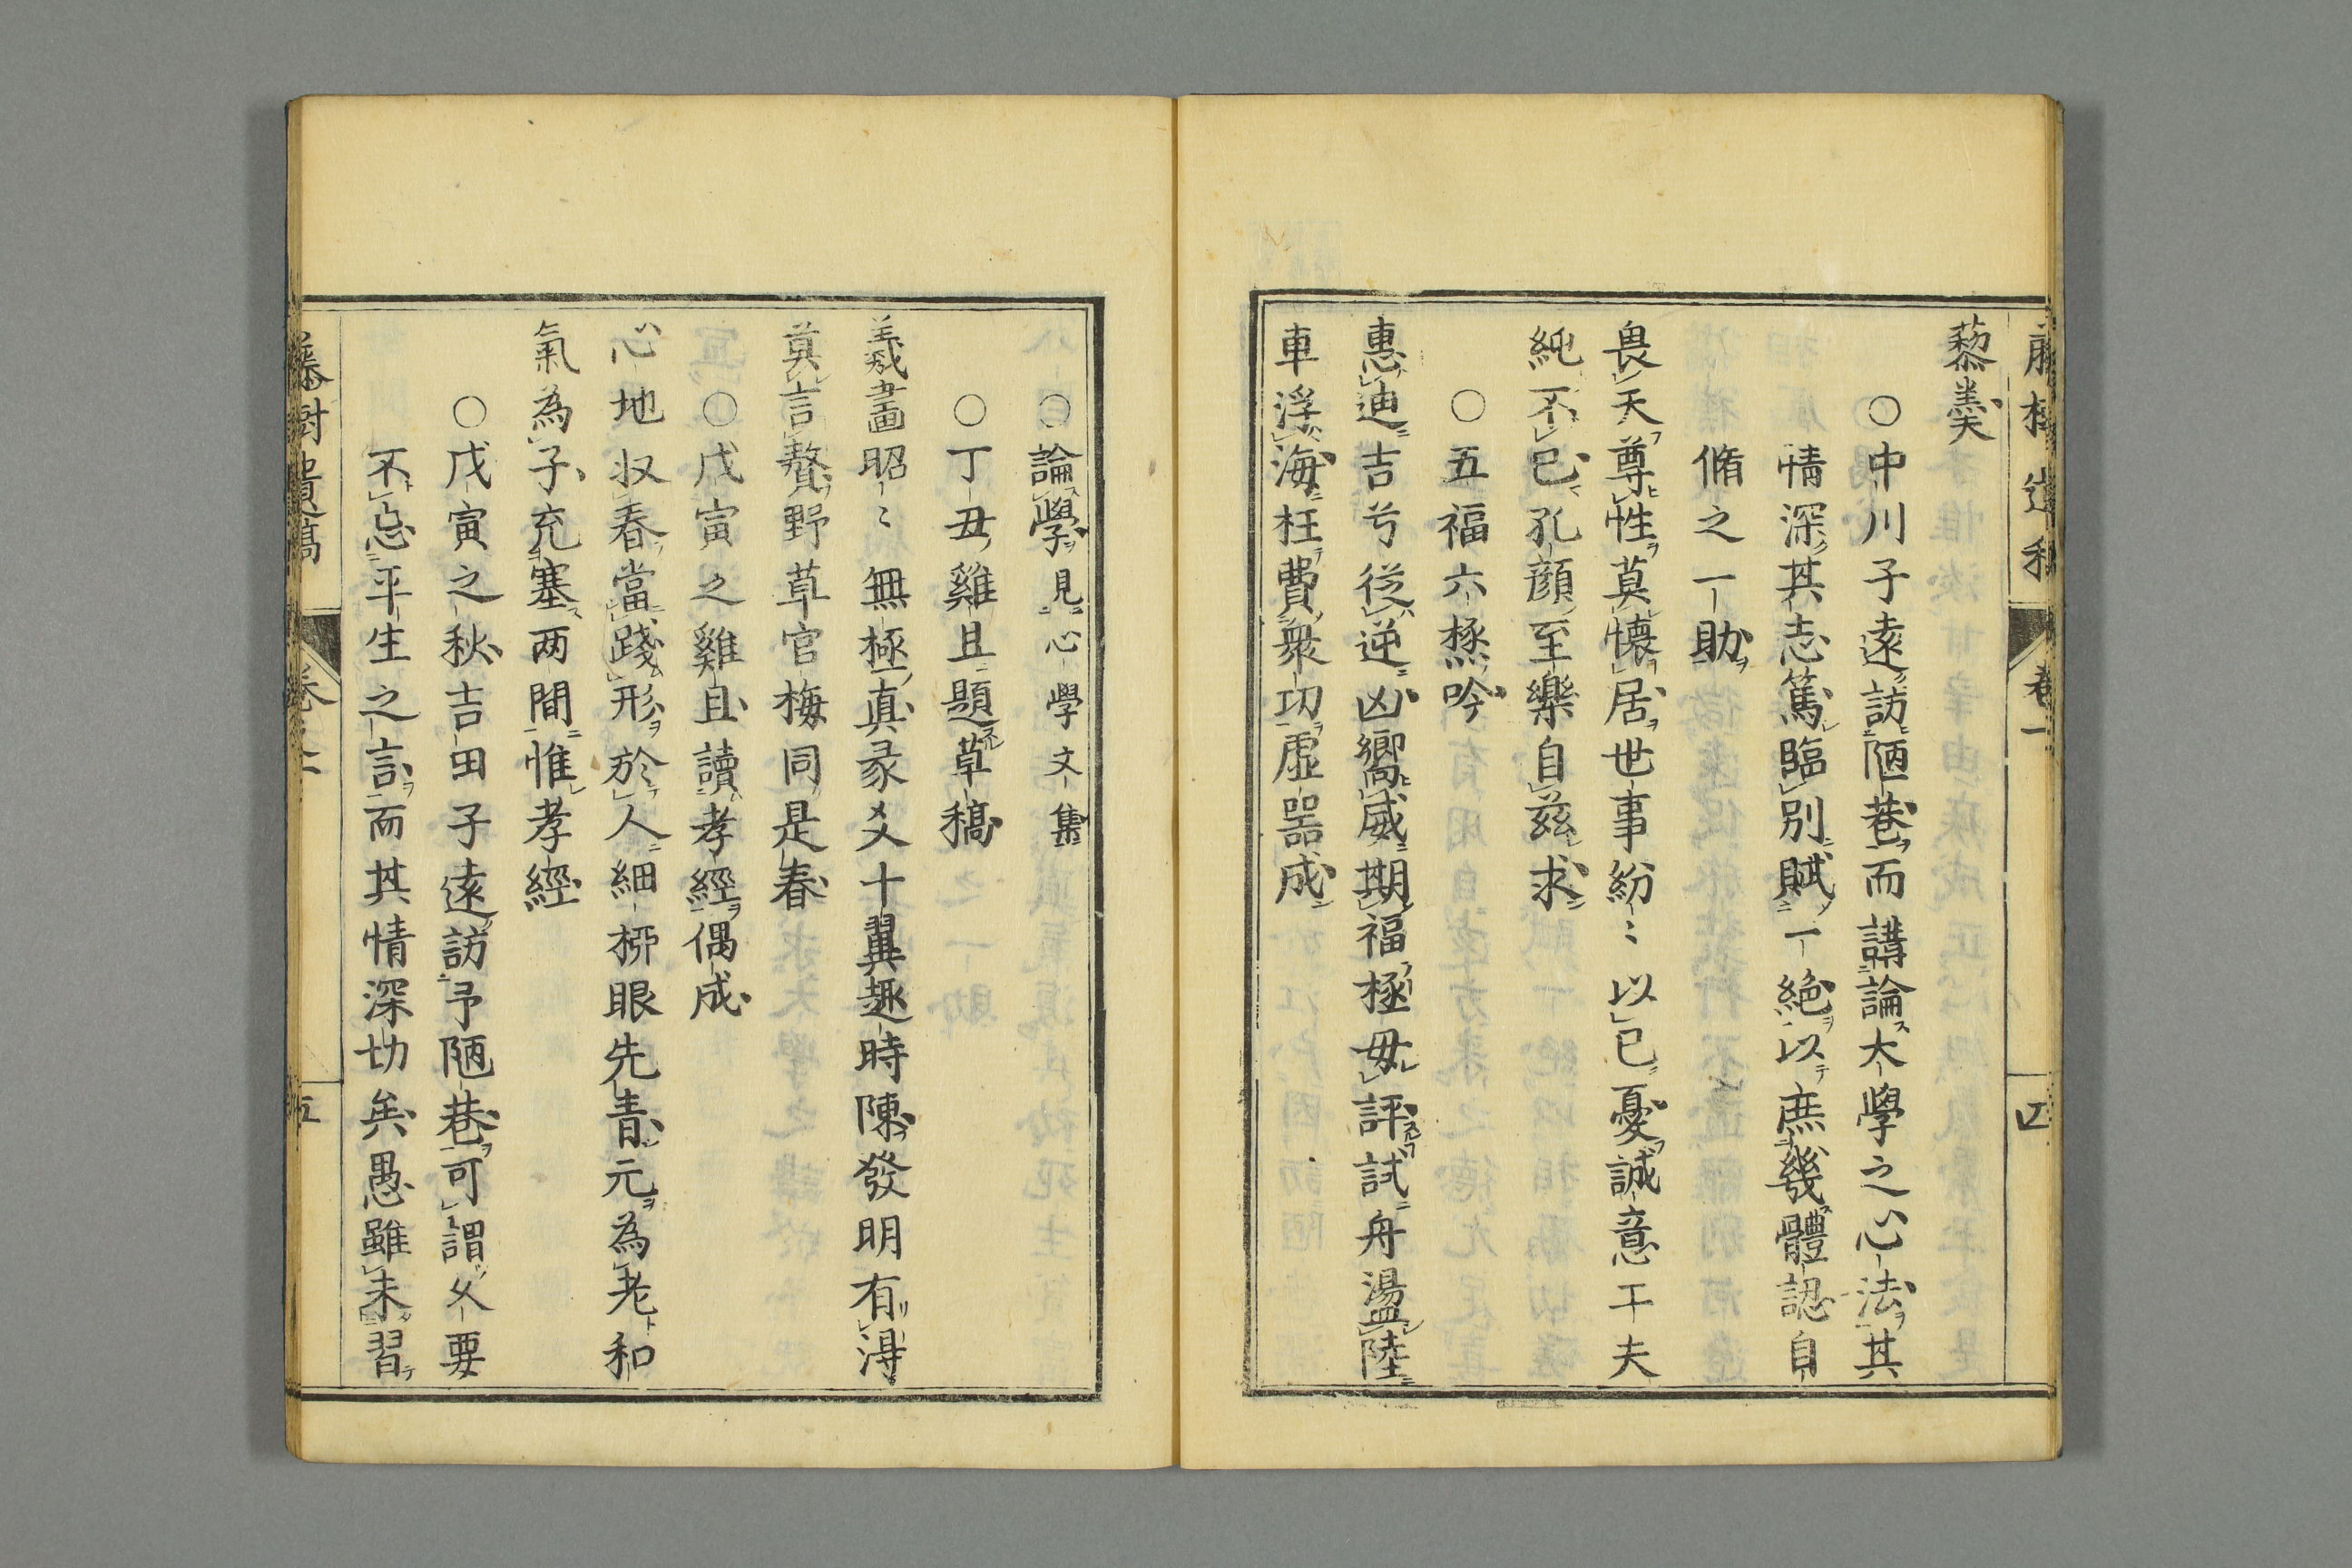 藜羹
○中川子遠訪陋巷而講論大學之心法其
情深其志篤臨別賦一絶以庶幾體認自
脩之一助
畏天尊性莫懐居世事紛〻以已憂誠意工夫
純不已孔顔至樂自兹求
○五福六極吟
惠迪吉兮從逆凶嚮威期福極毋評試舟盪陸
車浮海枉費衆功虚噐成
卷一
○論學見心學文集
○丁丑雞旦題草稿
羲畫昭〻無極真彖爻十翼趣時陳發明有淂
莫言贅野草官梅同是春
○戊寅之雞旦讀孝經偶成
心地収春當踐形於人細栁眼先青元為老和
氣為子充塞两間惟孝經
○戊寅之秋吉田子遠訪予陋巷可謂久要
不忘平生之言而其情深切矣愚雖未習
藤樹遺稿
卷之一
五